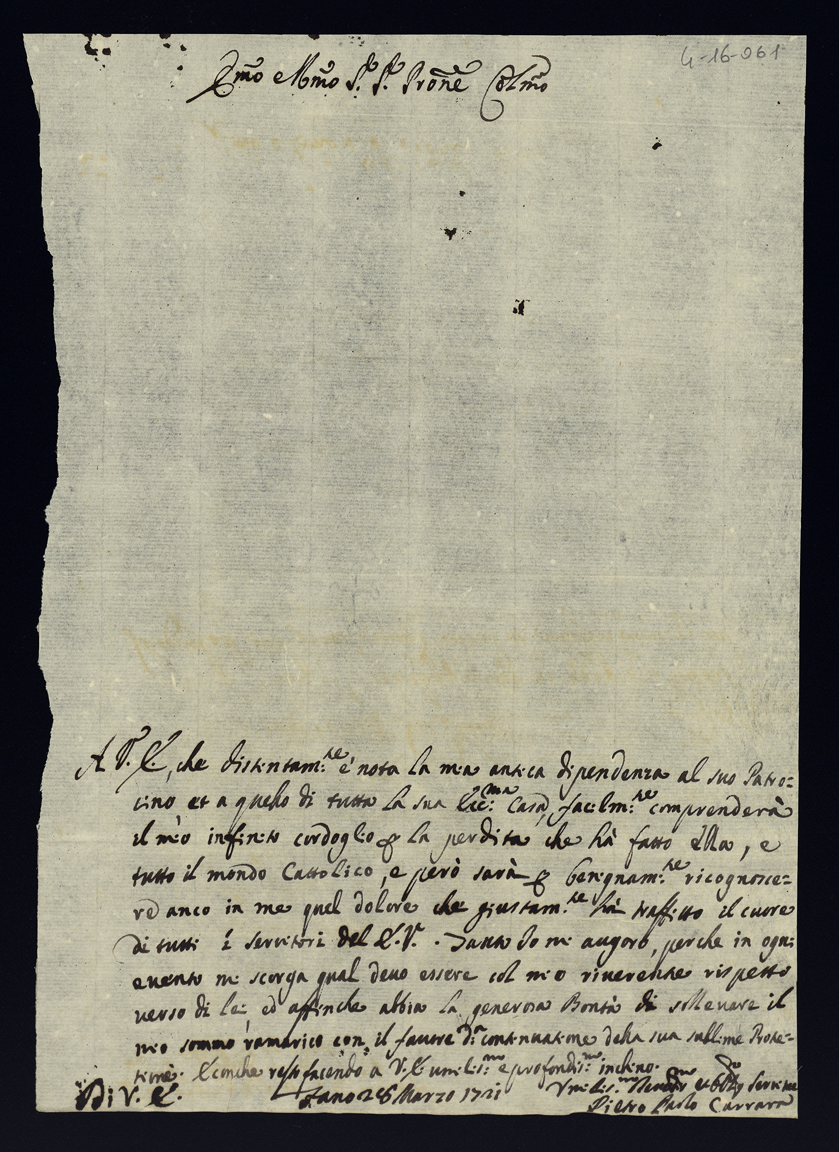 4-16-061
Emo e Rmo Sr. Sr. Prone Colmo
A V. E., che distintam:te è nota la mia antica dipendenza al suo Patro=
cino et a quello di tutta la sua Ecc:ma Casa, facilm:te comprenderà
il mio infinito cordoglio p la perdita che hà fatto Ella, e
tutto il mondo Cattolico, e però sarà p benignam:te ricognosce=
re anco in me quel dolore che giustam:te hà traffitto il cuore
di tutti i servitori del E.V. Tanto Io mi auguro, perche in ogni
evento mi scorga qual devo essere col mio riverente rispetto
verso di lei ed affinche abbia la generosa Bontà di sollevare il
mio sommo ramarico con il favore d continuatione della sua sublime Prote=
tione. E conche resto facendo a V. E. umilis:mo e profondis:mo inchino.
Di V. E. Fano 26 Marzo 1721 Umilis:mo et servitore
Pietro Paolo Carrara